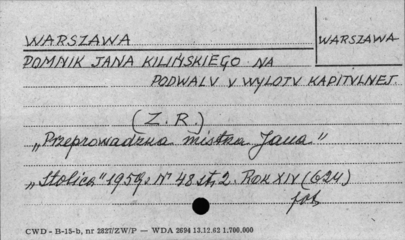 WARSZAWA
WARSZAWA
POMNIK JANA KILIŃSKIEGO NA
PODWALU U WYLOTU KAPITULNEJ.
(Z. R.)
„Przeprowadzka mistrza Jana"
„Stolica" 1959r. Nº 48 str. 2. ROK XIV (624)
fot.
CWD - H-15-b, nr 2827/ZW/P — WDA 2694 13.12.62 1.700.000